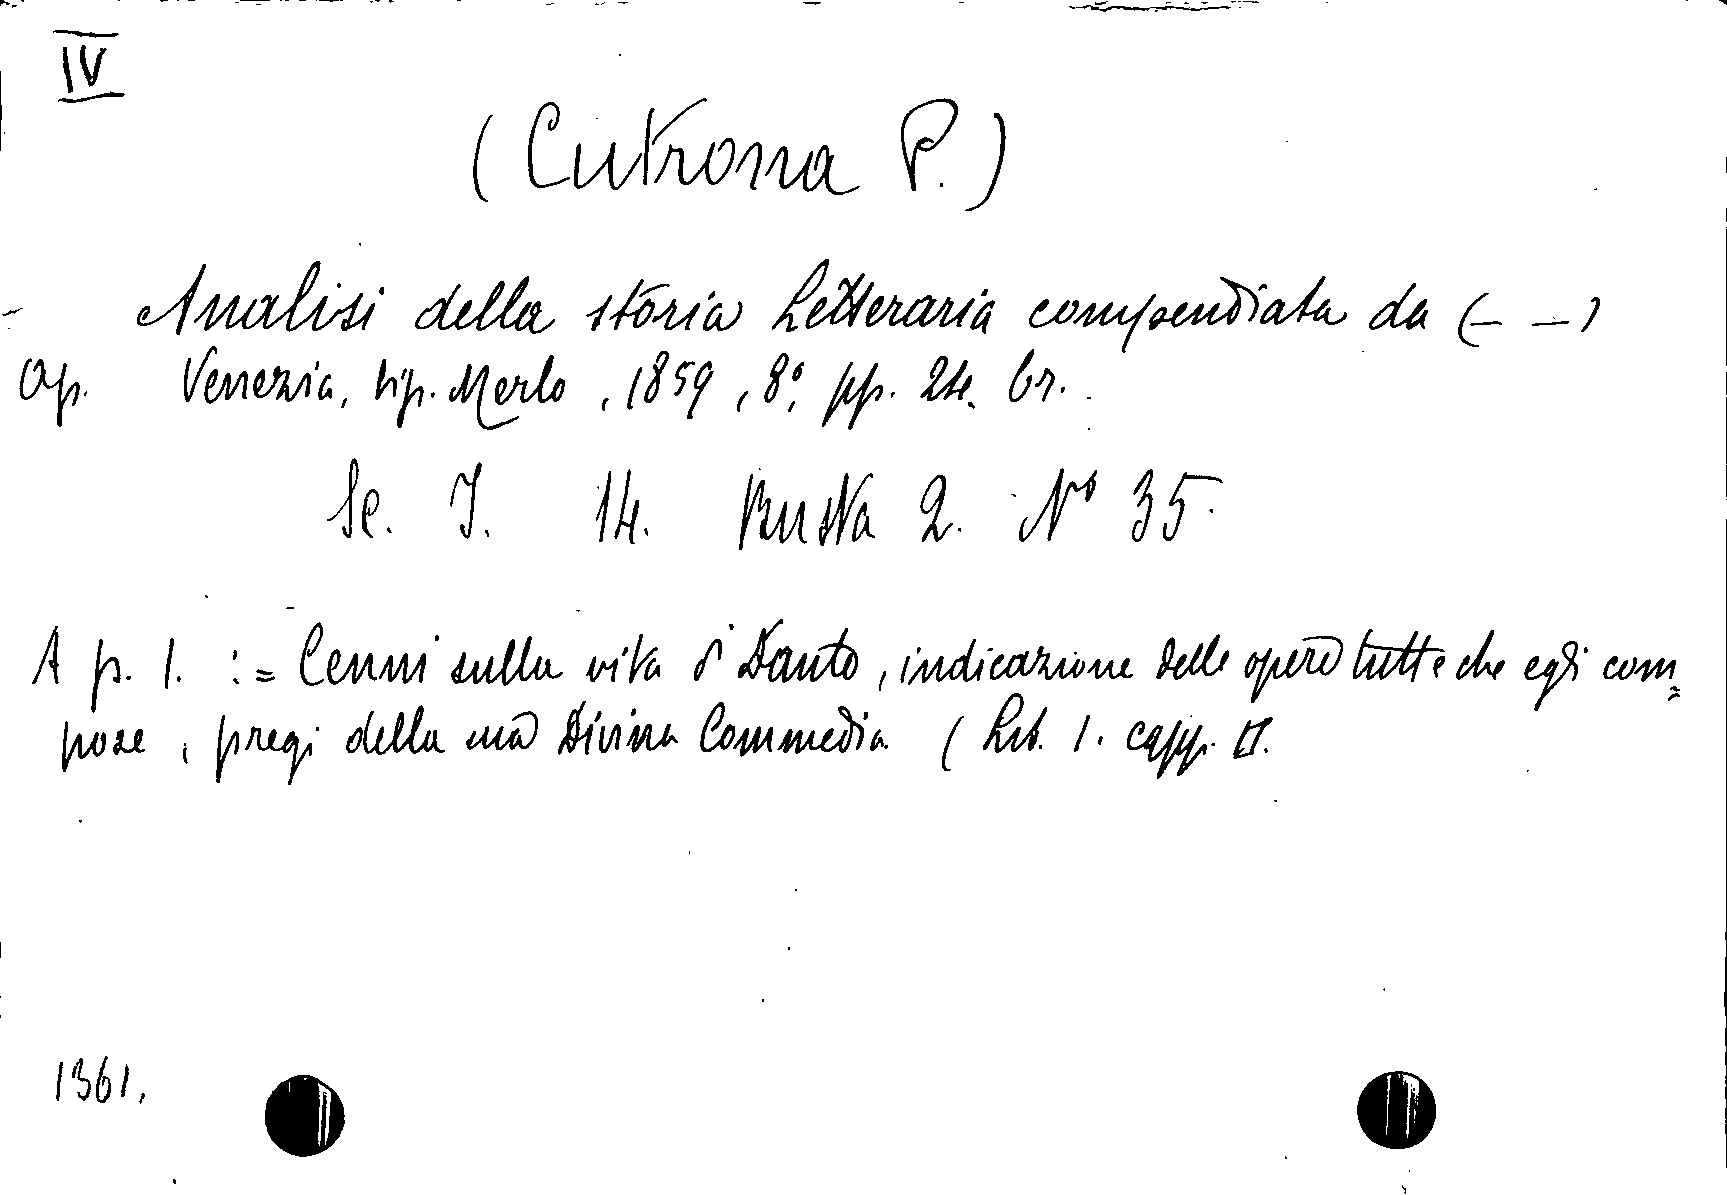 IV
(Cutrona P.)
Analisi della storia letteraria compendiata da (— —)
Op. Venezia, tip. Merlo, 1859, 8º, pp. 24. br.
Sc. I. 14. Busta 2. Nº 35.
A p. 1. := Cenni sulla vita d' Dante, indicazione delle opere tutte che egli com=
pose, pregi della sua Divina Commedia (Lib. 1. capp.
1361.